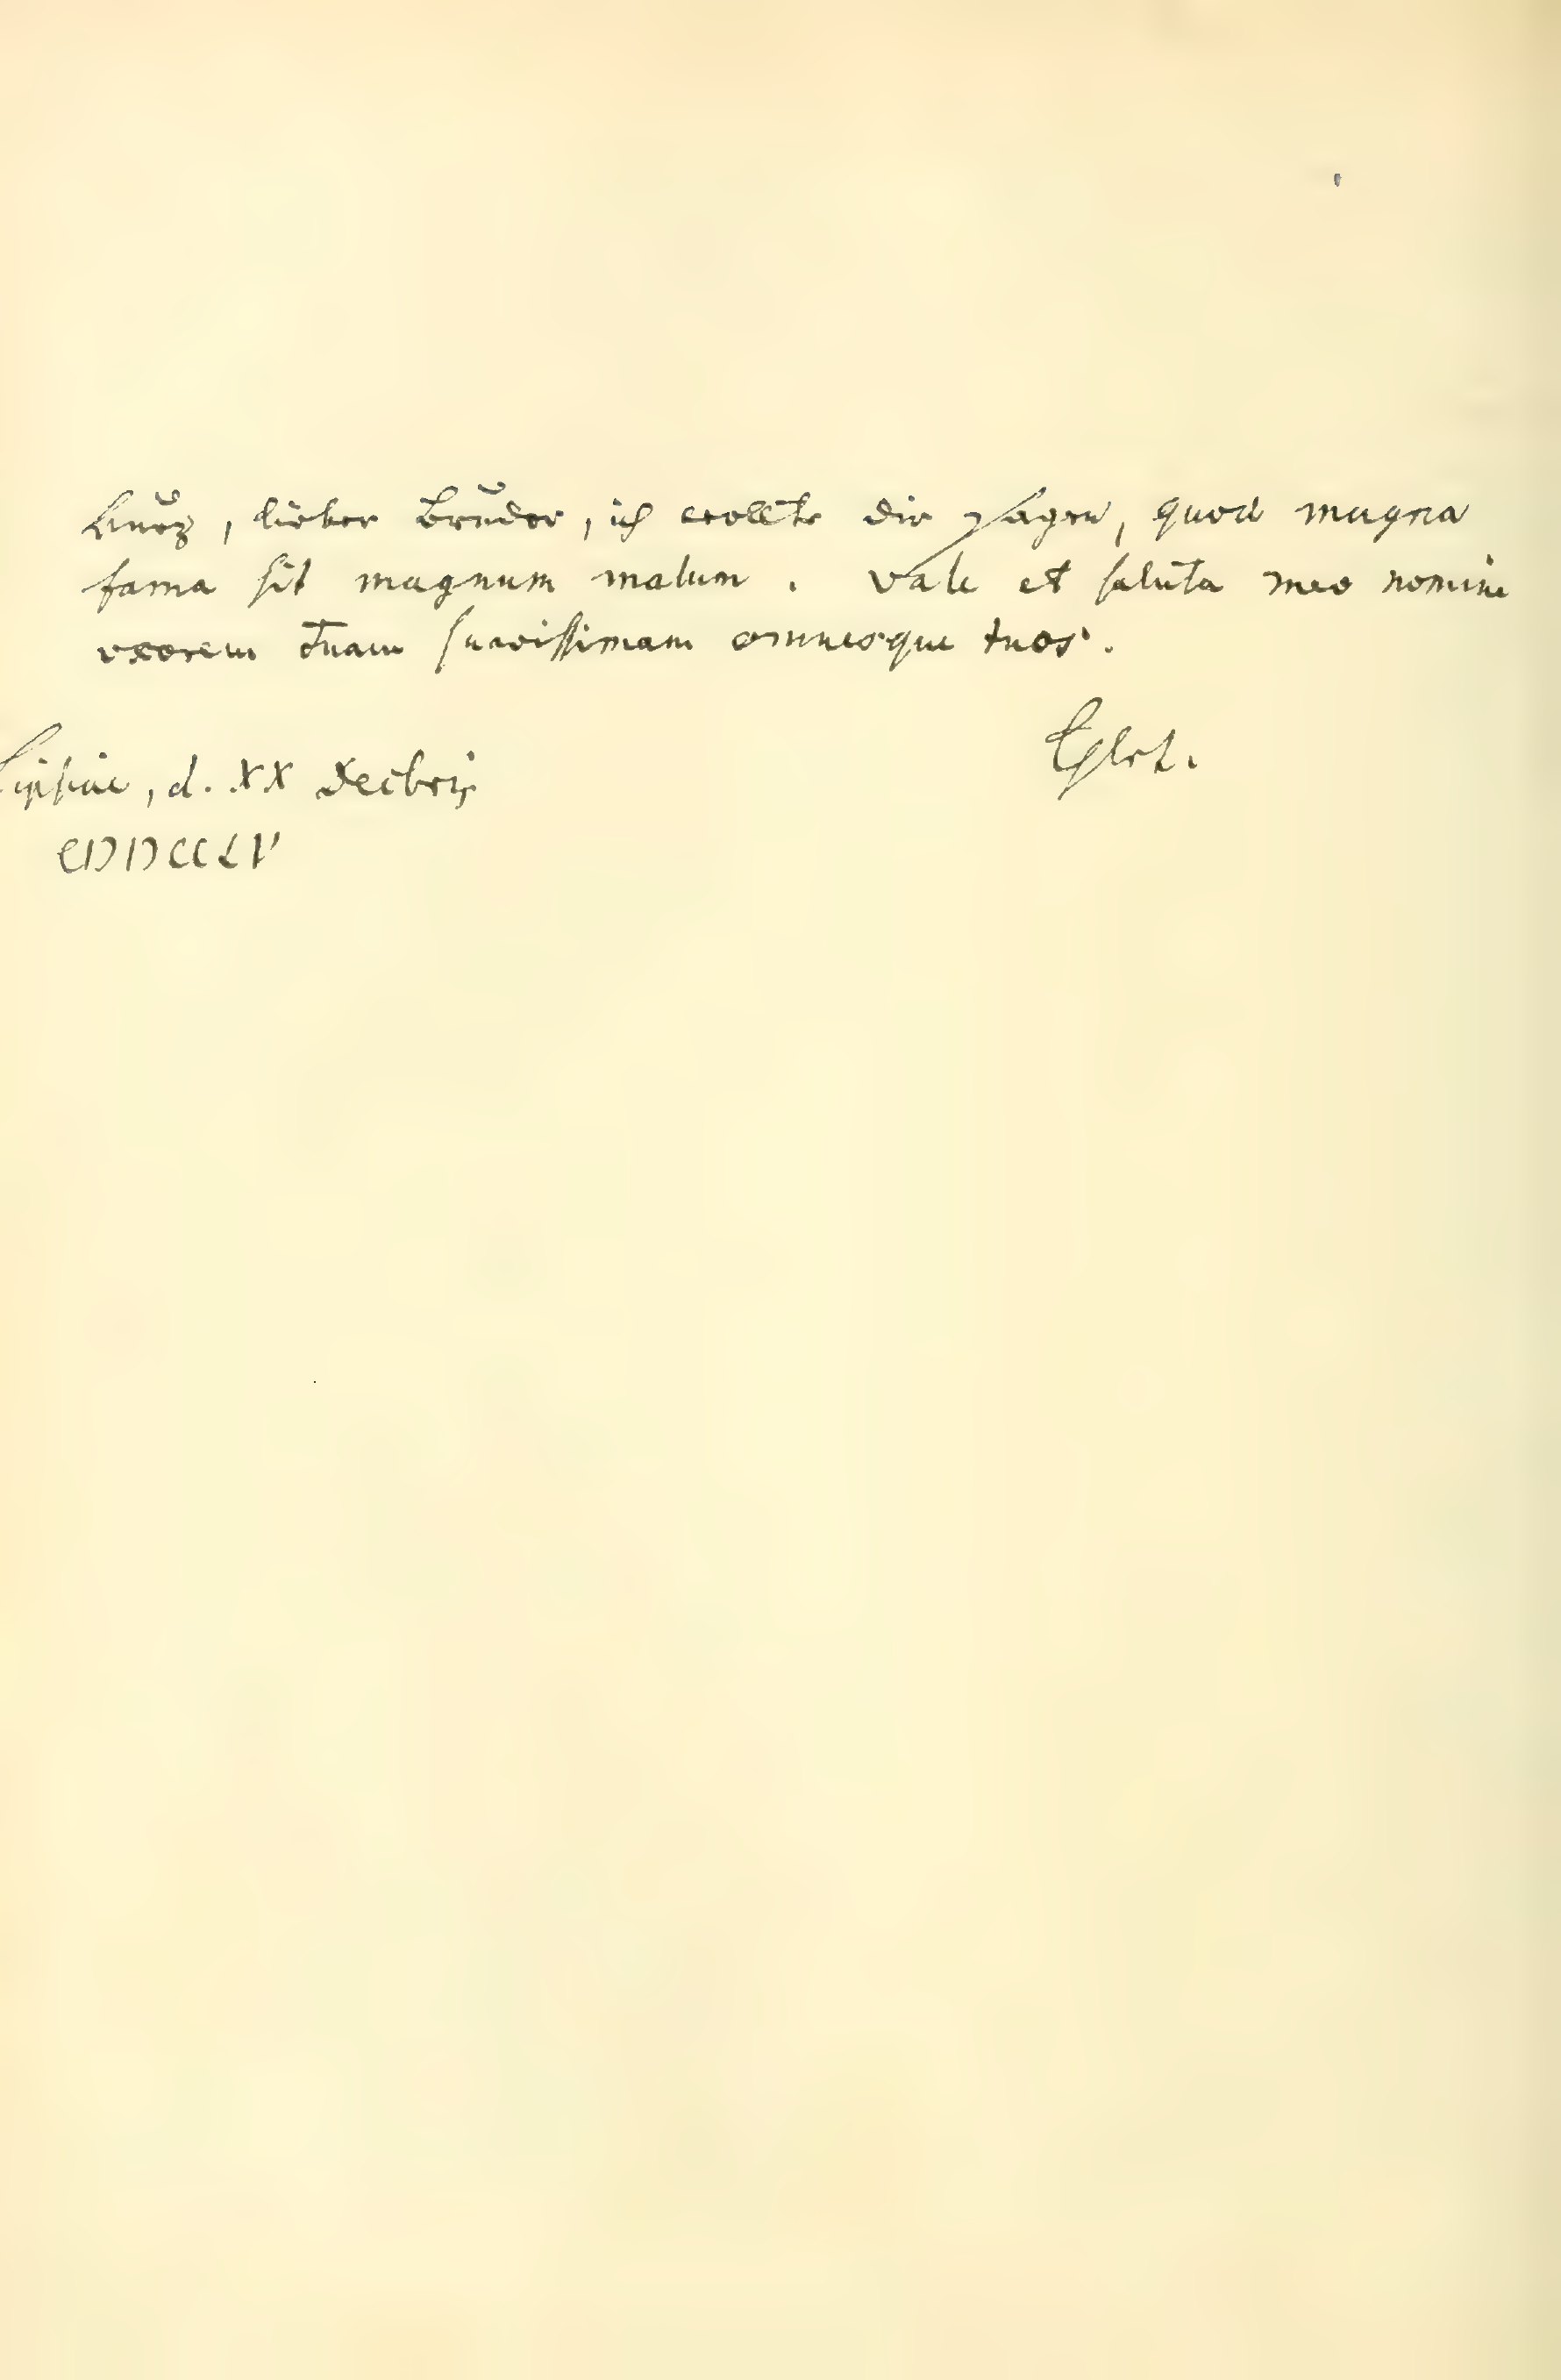 Kurz, lieber Bruder, ich wollte dir sagen, quod magna
fama sit magnum malum. Vale et saluta meo nomine
uxorem tuam suavissimam omnesque tuos.
Lipsiae, d. XX Decbris
CIƆIƆCCLV